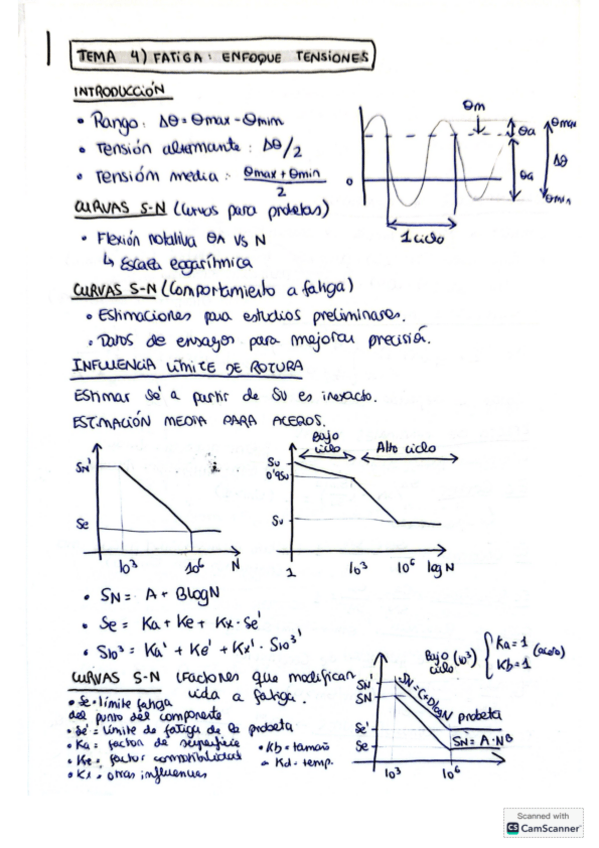 TEMA 4) FATIGA: ENFOQUE TENSIONES
INTRODUCCIÓN
• Rango: Δθ = θmax - θmin
• Tensión alternante: Δθ/2
• Tensión media: θmax + θmin / 2
θm
θa
θa
θmax
Δθ
θmin
0
1 ciclo
CURVAS S-N (Curvas para probetas)
• Flexión rotativa θA vs N
↳ Escala logarítmica
CURVAS S-N (Comportamiento a fatiga)
• Estimaciones para estudios preliminares.
• Datos de ensayos para mejorar precisión.
INFLUENCIA LÍMITE DE ROTURA
Estimar Se' a partir de Su es inexacto.
ESTIMACIÓN MEDIA PARA ACEROS.
SN'
Se
10³
10⁶
N
Bajo ciclo
Alto ciclo
Su
0'9Su
Su
1
10³
10⁶
log N
• SN = A + BlogN
• Se = Ka + Ke + Kx · Se'
• S10³ = Ka' + Ke' + Kx' · S10³'
CURVAS S-N (Factores que modifican
vida a fatiga.
• Se = límite fatiga
del punto del componente
• Se' = Límite de fatiga de la probeta
• Ka = factor de superficie
• Kb = tamaño
• Ke = factor confiabilidad
• Kd = temp.
• Kx = otras influencias
Bajo ciclo (10³) { Ka = 1
Kb = 1 (acero)
SN'
SN
Se'
Se
SN = C+DlogN
probeta
SN = A·N^B
10³
10⁶
Scanned with
CS CamScanner